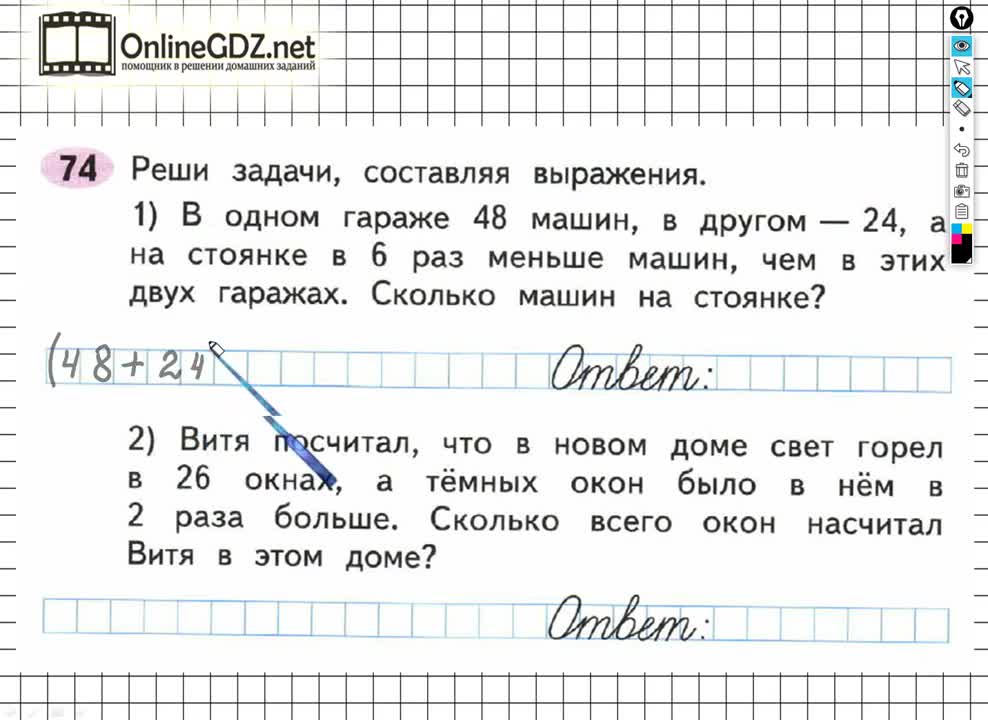 OnlineGDZ.net
помощник в решении домашних заданий
74 Реши задачи, составляя выражения.
1) В одном гараже 48 машин, в другом — 24, а
на стоянке в 6 раз меньше машин, чем в этих
двух гаражах. Сколько машин на стоянке?
(48+24 Ответ:
2) Витя посчитал, что в новом доме свет горел
в 26 окнах, а тёмных окон было в нём в
2 раза больше. Сколько всего окон насчитал
Витя в этом доме?
Ответ: